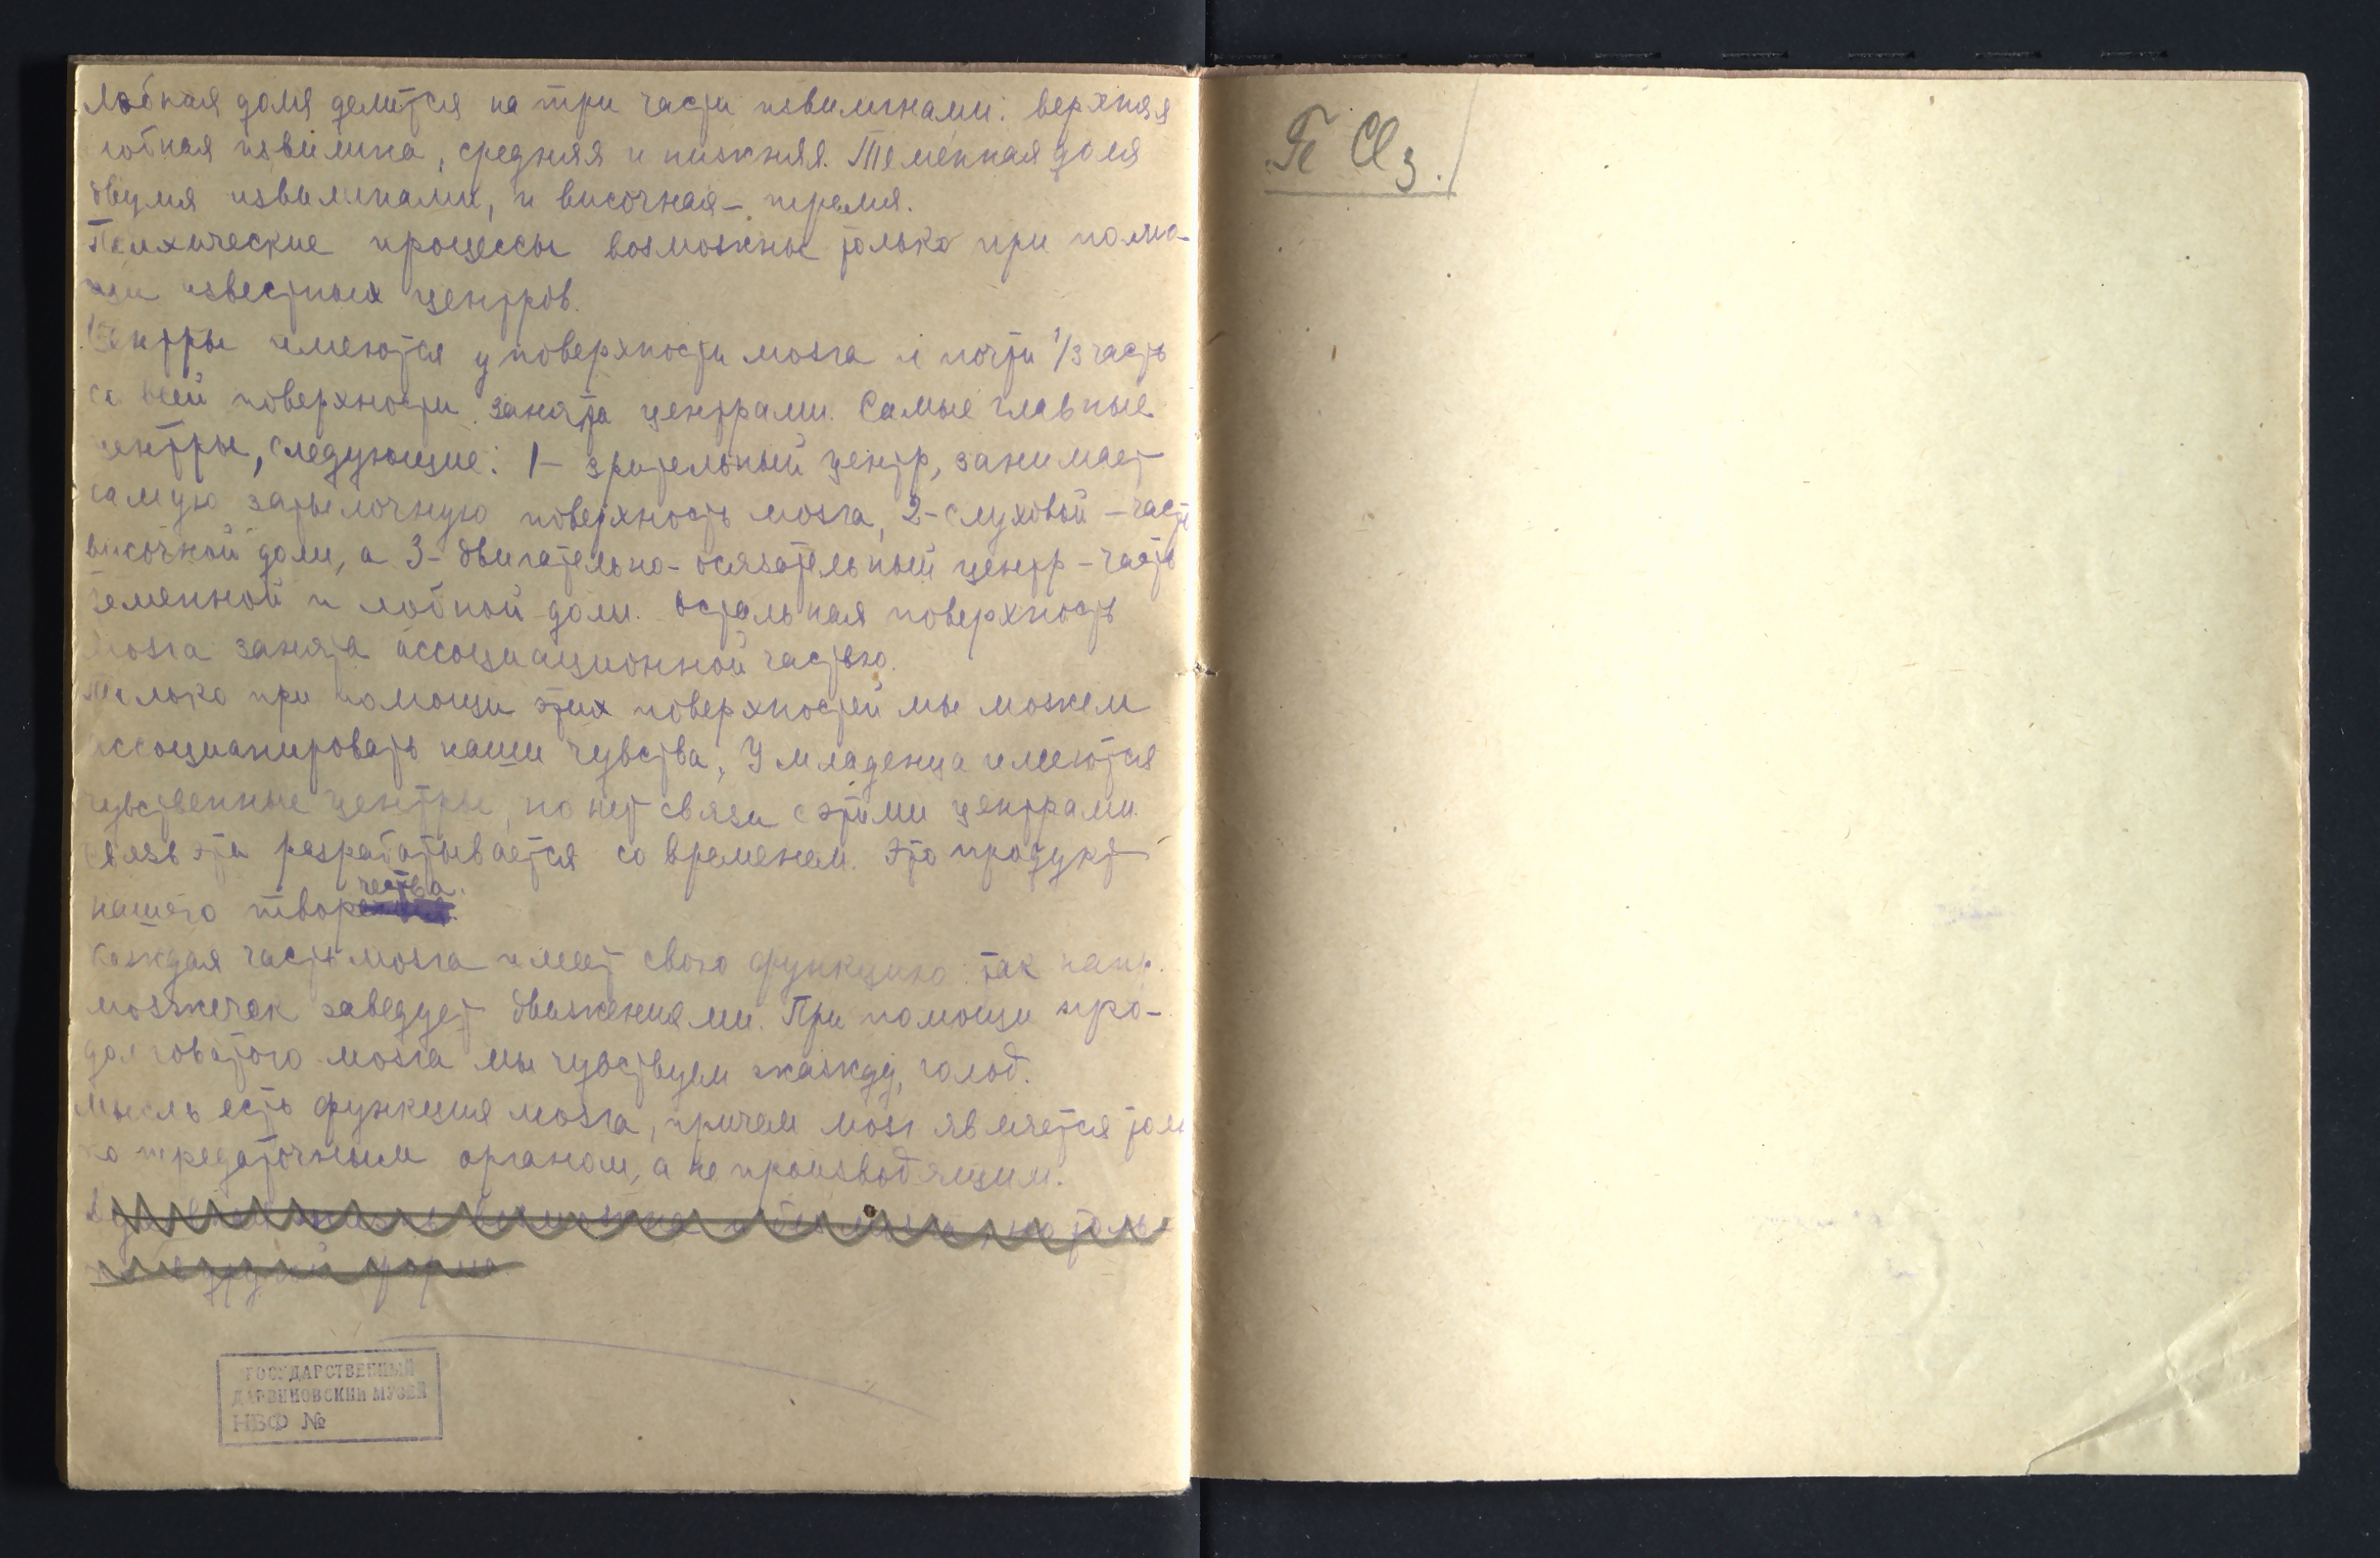 Лобная доля делится на три части извилинами: верхняя
лобная извилина, средняя и нижняя. Теменная доля
двумя извилинами, и височная – тремя.
Психические процессы возможны только при помо-
щи известных центров.
Центры имеются у поверхности мозга и почти 1/3 часть
со всей поверхности занята центрами. Самые главные
центры, следующие: 1 – зрительный центр, занимает
самую затылочную поверхность мозга, 2 – слуховой – часть
височной доли, а 3 – двигательно-осязательный центр – часть
теменной и лобной доли. Остальная поверхность
мозга занята ассоциационной частью.
Только при помощи этих поверхностей мы можем
ассоцианировать наши чувства, У младенца имеются
чувственные центры, но нет связи с этими центрами.
Связь эта разрабатывается со временем. Это продукт
чества.
нашего твор
Каждая часть мозга имеет свою функцию: так напр.
мозжечек заведует движениями. При помощи про-
долговатого мозга мы чувствуем жажду, голод.
Мысль есть функция мозга, причем мозг является толь
ко передаточным органом, а не производящим.
но толь-
ко в другой форме.
ГОСУДАРСТВЕННЫЙ
ДАРВИНОВСКИЙ МУЗЕЙ
НВФ №